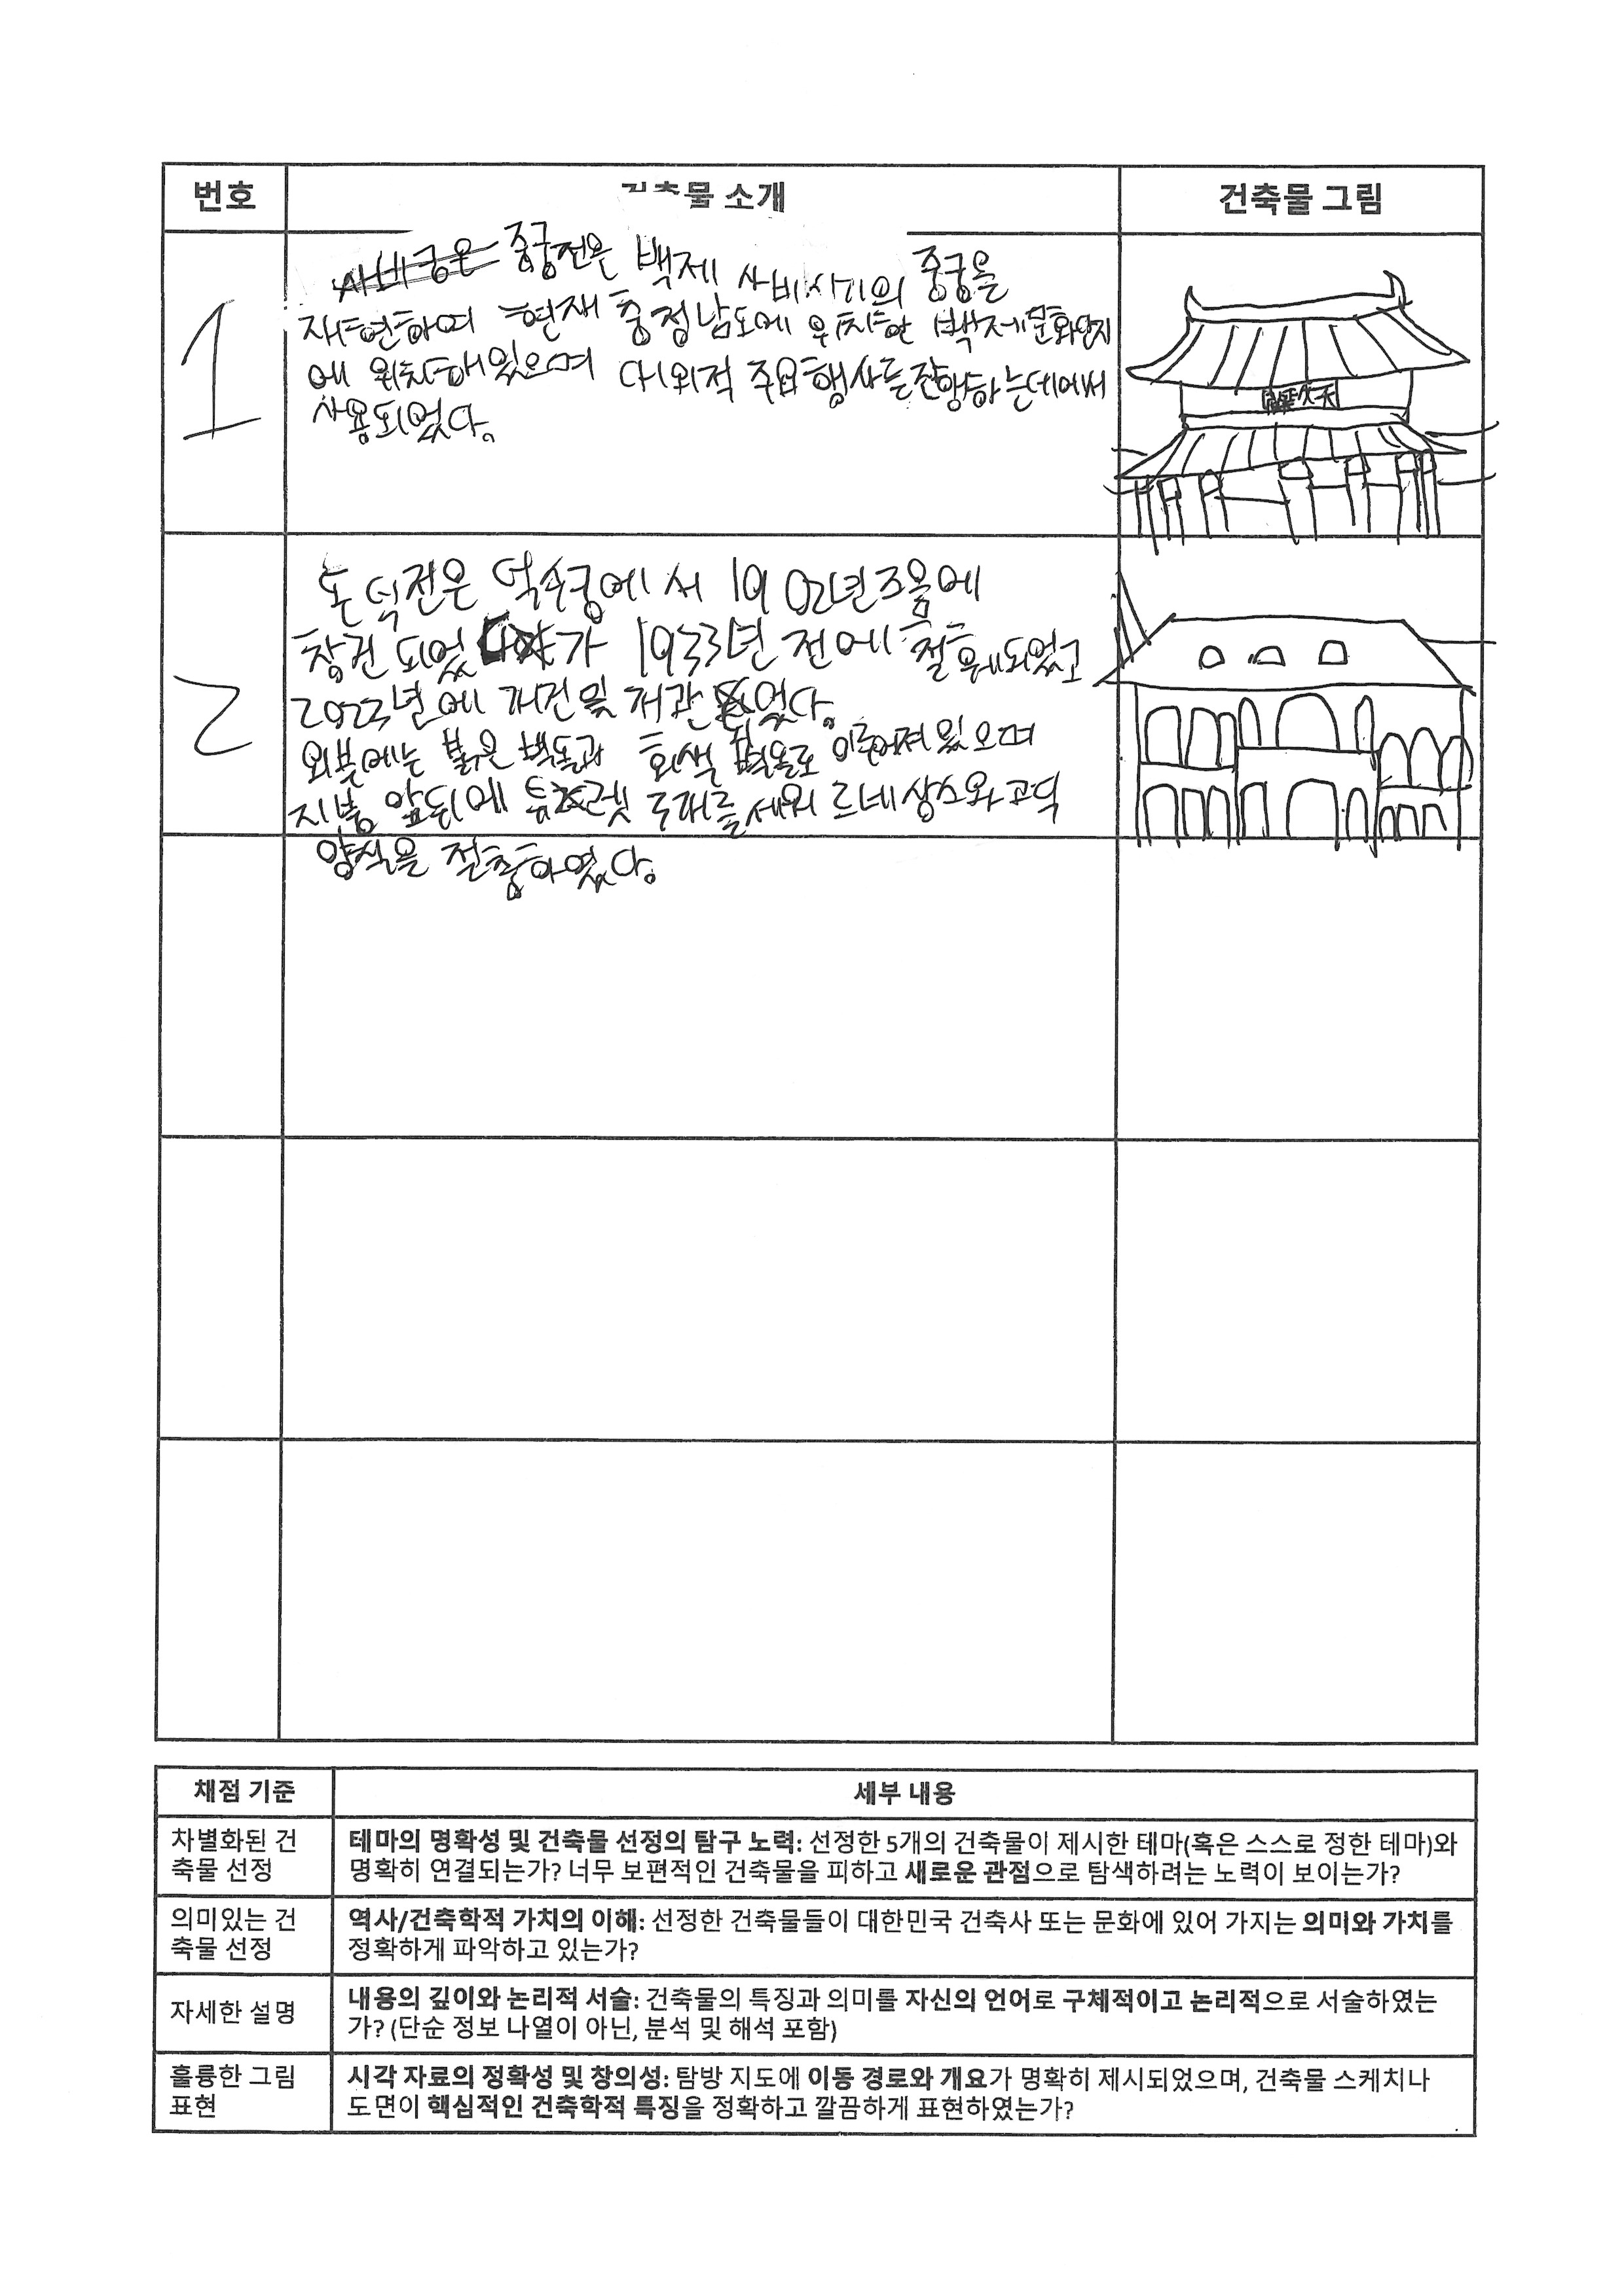 번호
건축물 소개
건축물 그림
1
사비궁은 중궁전은 백제 사비시기의 중궁을
재현하며 현재 충정남도에 위치한 백제문화단지
에 위치해있으며 대외적 주요행사를진행하는데에서
사용되었다.
2
돈덕전은 덕수궁에서 1902년즈음에
창건되었 가 1933년 전에 철훼되었고
2023년에 재건 및 재관 었다.
외부에는 붉은 벽돌과 회색 벽돌로 이루어져있으며
지붕 앞뒤에 튜렛 두개를세워 르네상스와 고딕
양식을 절충하였다.
채점 기준
세부 내용
차별화된 건
축물 선정
테마의 명확성 및 건축물 선정의 탐구 노력: 선정한 5개의 건축물이 제시한 테마(혹은 스스로 정한 테마)와
명확히 연결되는가? 너무 보편적인 건축물을 피하고 새로운 관점으로 탐색하려는 노력이 보이는가?
의미있는 건
축물 선정
역사/건축학적 가치의 이해: 선정한 건축물들이 대한민국 건축사 또는 문화에 있어 가지는 의미와 가치를
정확하게 파악하고 있는가?
자세한 설명
내용의 깊이와 논리적 서술: 건축물의 특징과 의미를 자신의 언어로 구체적이고 논리적으로 서술하였는
가? (단순 정보 나열이 아닌, 분석 및 해석 포함)
훌륭한 그림
표현
시각 자료의 정확성 및 창의성: 탐방 지도에 이동 경로와 개요가 명확히 제시되었으며, 건축물 스케치나
도면이 핵심적인 건축학적 특징을 정확하고 깔끔하게 표현하였는가?